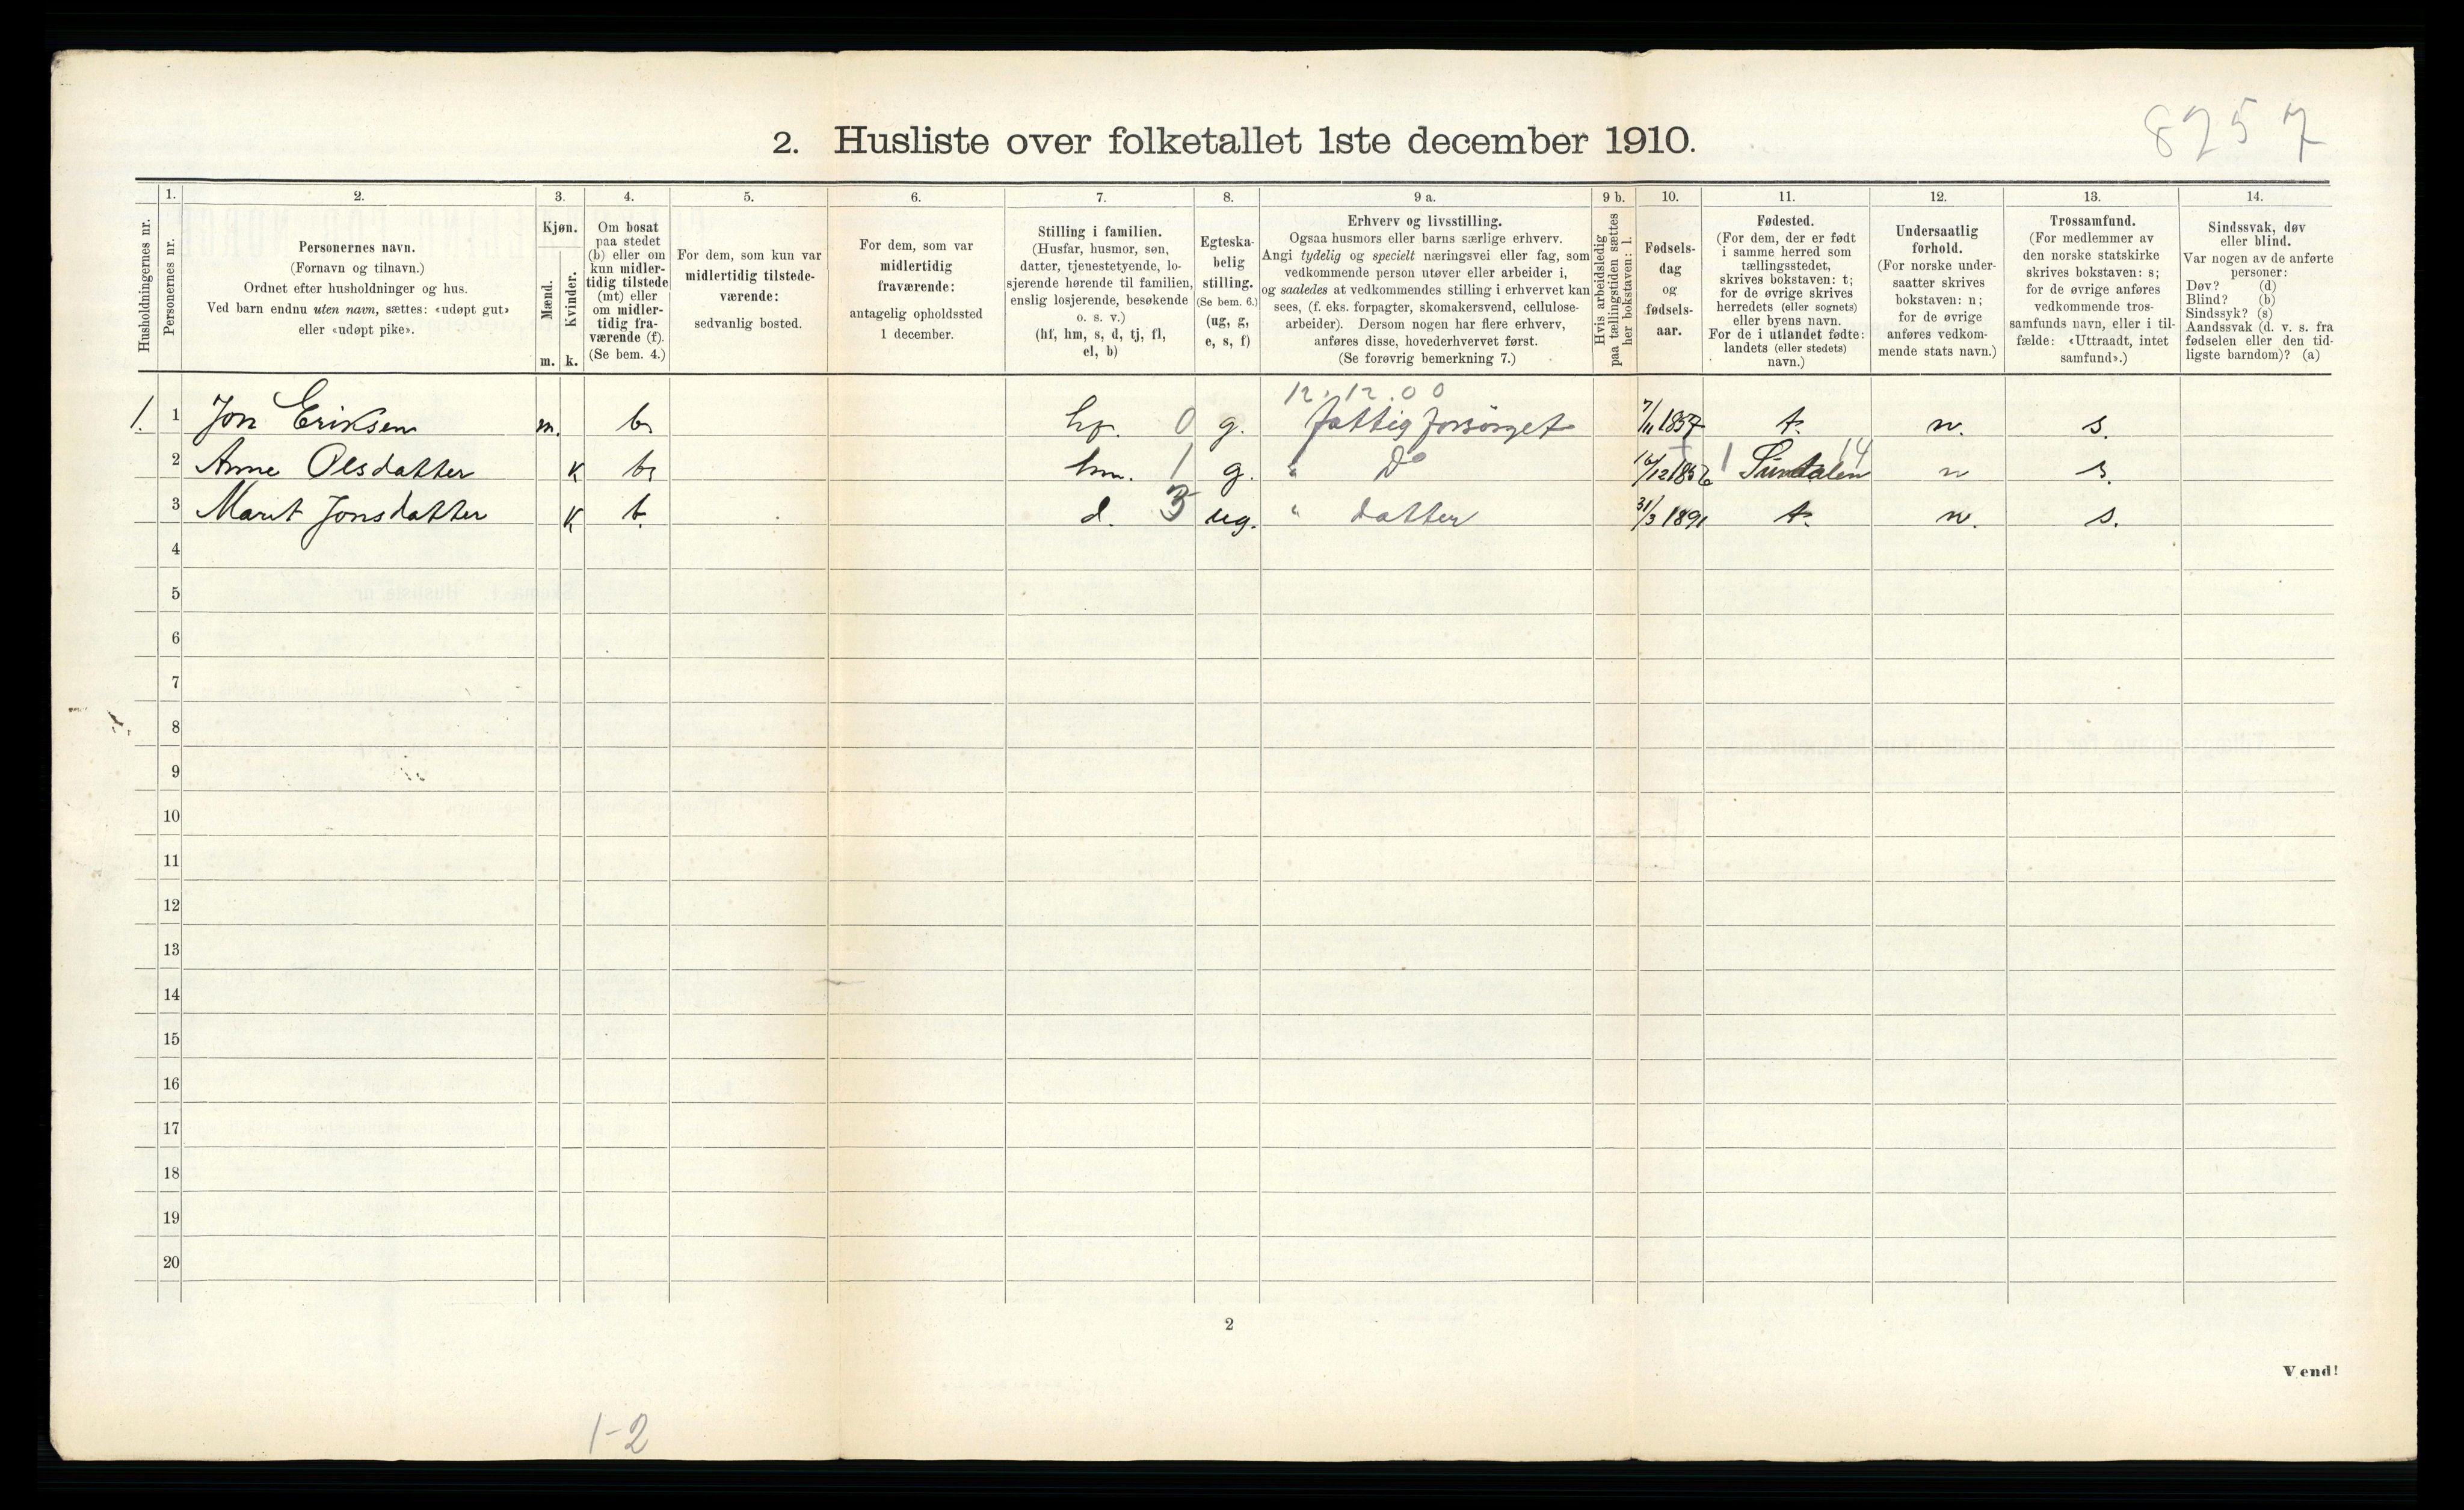 8257
2. Husliste over folketallet 1ste december 1910.
Husholdningernes nr.
1.
Personernes nr.
2.
Personernes navn.
(Fornavn og tilnavn.)
Ordnet efter husholdninger og hus.
Ved barn endnu uten navn, sættes: «udøpt gut»
eller «udøpt pike».
3.
Kjøn.
Mænd.
m.
Kvinder.
k.
4.
Om bosat
paa stedet
(b) eller om
kun midler-
tidig tilstede
(mt) eller
om midler-
tidig fra-
værende (f).
(Se bem. 4.)
5.
For dem, som kun var
midlertidig tilstede-
værende:
sedvanlig bosted.
6.
For dem, som var
midlertidig
fraværende:
antagelig opholdssted
1 december.
7.
Stilling i familien.
(Husfar, husmor, søn,
datter, tjenestetyende, lo-
sjerende hørende til familien,
enslig losjerende, besøkende
o. s. v.)
(hf, hm, s, d, tj, fl,
el, b)
8.
Egteska-
belig
stilling.
(Se bem. 6.)
(ug, g,
e, s, f)
9 a.
Erhverv og livsstilling.
Ogsaa husmors eller barns særlige erhverv.
Angi tydelig og specielt næringsvei eller fag, som
vedkommende person utøver eller arbeider i,
og saaledes at vedkommendes stilling i erhvervet kan
sees, (f. eks. forpagter, skomakersvend, cellulose-
arbeider). Dersom nogen har flere erhverv,
anføres disse, hovederhvervet først.
(Se forøvrig bemerkning 7.)
9 b.
Hvis arbeidsledig
paa tællingstiden sættes
her bokstaven: l.
10.
Fødsels-
dag
og
fødsels-
aar.
11.
Fødested.
(For dem, der er født
i samme herred som
tællingsstedet,
skrives bokstaven: t;
for de øvrige skrives
herredets (eller sognets)
eller byens navn.
For de i utlandet fødte:
landets (eller stedets)
navn.)
12.
Undersaatlig
forhold.
(For norske under-
saatter skrives
bokstaven: n;
for de øvrige
anføres vedkom-
mende stats navn.)
13.
Trossamfund.
(For medlemmer av
den norske statskirke
skrives bokstaven: s;
for de øvrige anføres
vedkommende tros-
samfunds navn, eller i til-
fælde: «Uttraadt, intet
samfund».)
14.
Sindssvak, døv
eller blind.
Var nogen av de anførte
personer:
Døv? (d)
Blind? (b)
Sindssyk? (s)
Aandssvak (d. v. s. fra
fødselen eller den tid-
ligste barndom)? (a)
12.12.00
1. 1 Jon Eriksen m. b. hf. 0 g. fattigforsørget 7/11 1857 t. n. s.
2 Anne Olsdatter k b. hm. 1 g. " Do 16/12 1852 1 Sundalen 14 n s.
3 Marit Jonsdatter k b. d. 3 ug. " datter 31/3 1891 t. n. s.
4
5
6
7
8
9
10
11
12
13
14
15
16
17
18
19
20
2
Vend!
1-2